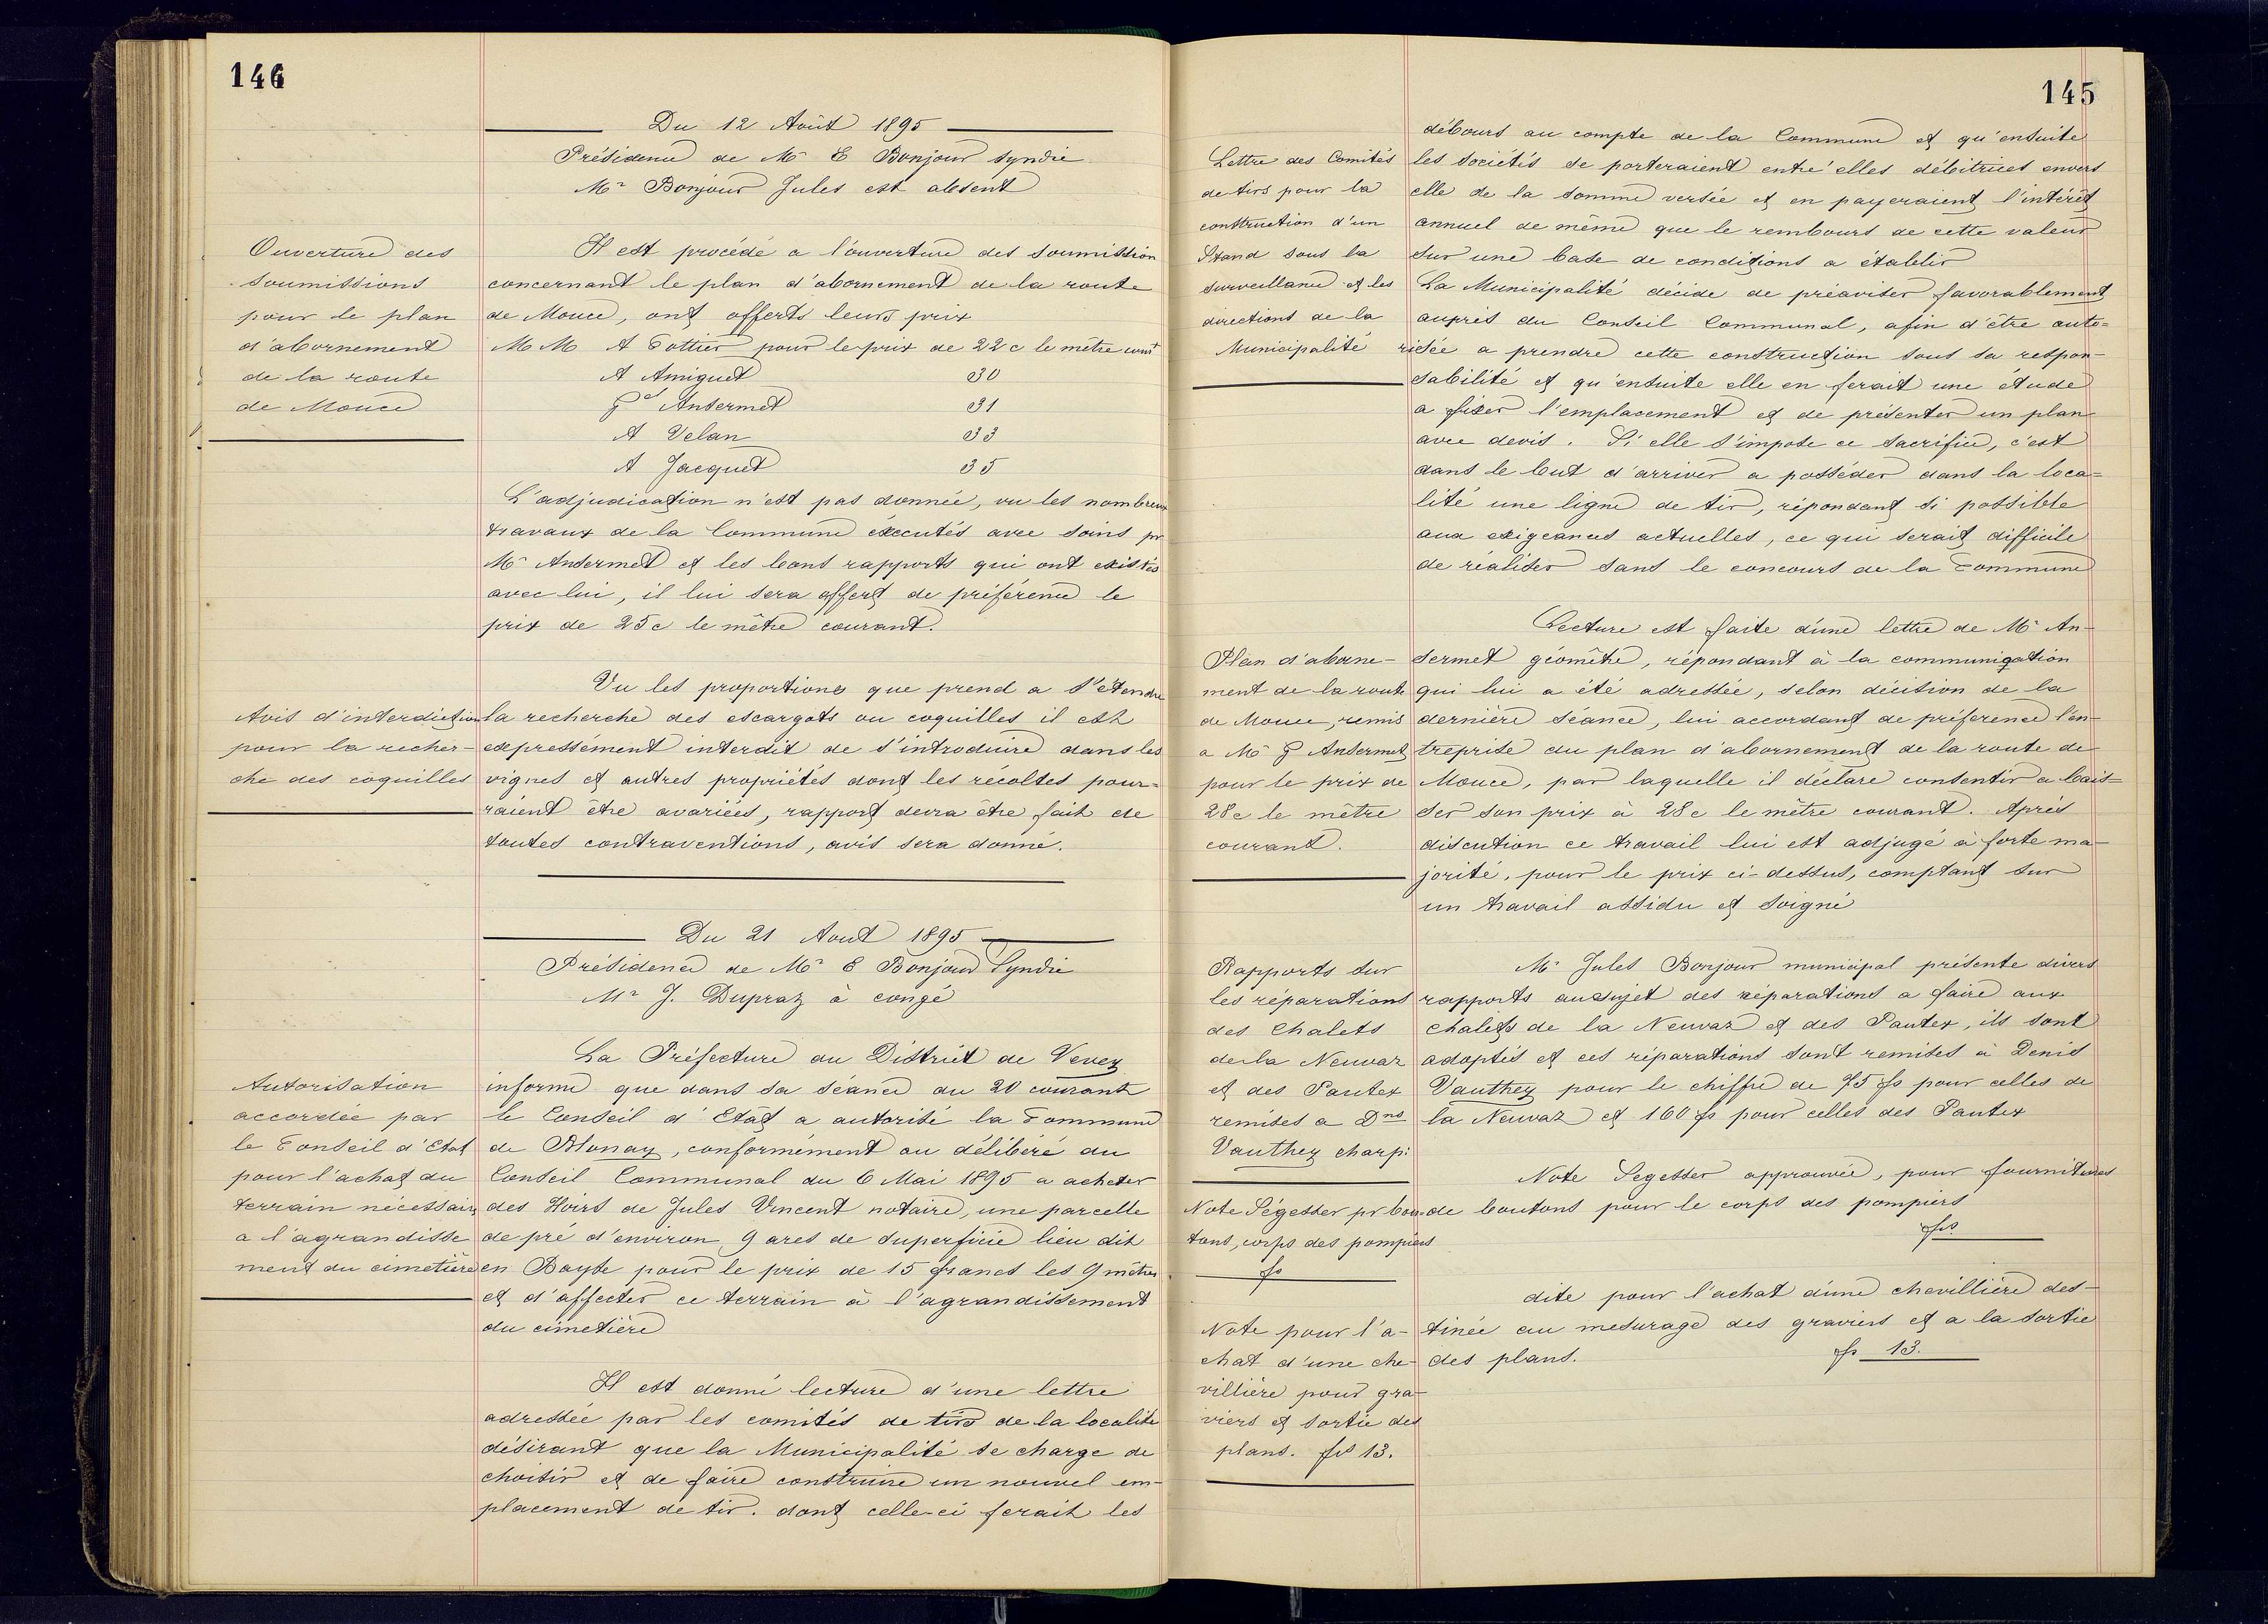 146
Du 12 Août 1895
Présidence de Mr E Bonjour syndic
Mr Bonjour Jules est absent
Ouverture des
soumissions
pour le plan
d'abornement
de la route
de Mouce
Il est procédé a l'ouverture des soumission
concernant le plan d'abornement de la route
de Mouce, ont offerts leurs prix
MM A Cottier pour le prix de 22 c le mètre cour
A Amiguet 30
Ansermet 31
A Velan 33
A Jacquet 35
L'adjudication n'est pas donnée, vu les nombreux
travaux de la Commune éxecutés avec soins pr
Mr Ansermet et les bons rapports qui ont existés
avec lui, il lui sera offert de préférence le
prix de 25 c le mètre courant.
Avis d'interdiction
pour la recher-
che des coquilles
Vu les proportions que prend a s'étendre
la recherche des escargots ou coquilles il est
expressément interdit de s'introduire dans les
vignes et autres propriétés dont les récoltes pour-
raient être avariées, rapport devra être fait de
toutes contraventions, avis sera donné.
Du 21 Aout 1895
Présidence de Mr E Bonjour Syndic
Mr J. Dupraz à congé
Autorisation
accordée par
le Conseil d'Etat
pour l'achat du
terrain nécessaire
a l'agrandisse
ment du cimetière
La Préfecture du District de Vevey
informe que dans sa séance du 20 courant
le Conseil d'Etat a autorisé la Commune
de Blonay, conformément au délibéré du
Conseil Communal du 6 Mai 1895 a acheter
des Hoirs de Jules Vincent notaire, une parcelle
de pré d'environ 9 ares de superficie lieu dit
en Bayse pour le prix de 15 francs les 9 mètres
et d'affecter ce terrain à l'agrandissement
du cimetière
Il est donné lecture d'une lettre
adressée par les comités de tirs de la localité
désirant que la Municipalité se charge de
choisir et de faire construire un nouvel em-
placement de tir. dont celle-ci ferait les
145
Lettre des Comités
de tirs pour la
construction d'un
Stand sous la
surveillance et les
directions de la
Municipalité
débours au compte de la Commune et qu'ensuite
les sociétés se porteraient entre'elles débitrices envers
elle de la somme versée et en payeraient l'intérêt
annuel de même que le rembours de cette valeur
sur une base de conditions a établir
La Municipalité décide de préaviser favorablement
aupres du Conseil Communal, afin d'être auto=
risée a prendre cette construction sous sa respon-
sabilité et qu'ensuite elle en ferait une étude
a fixer l'emplacement et de présenter un plan
avec devis. Si elle s'impose ce sacrifice, c'est
dans le but d'arriver a posséder dans la loca=
lité une ligne de tir, répondant si possible
aux exigeances actuelles, ce qui serait difficile
de réaliser sans le concours de la Commune
Plan d'aborne-
ment de la route
de Mouce, remis
a Mr Ansermet
pour le prix de
28 c le mètre
courant.
Lecture est faite d'une lettre de Mr An-
sermet géomètre, répondant à la communication
qui lui a été adressée, selon décision de la
dernière séance, lui accordant de préference l'en-
treprise du plan d'abornement de la route de
Mouce, par laquelle il déclare consentir a bais=
ser son prix à 28 c le mètre courant. Après
discution ce travail lui est adjugé à forte ma-
jorité, pour le prix ci-dessus, comptant sur
un travail assidu et soigné
Rapports sur
les réparations
des Chalets
de la Neuvaz
et des Pautex
remises a Dns
Vauthey charp:
Mr Jules Bonjour municipal présente divers
rapports au sujet des réparations a faire aux
chalets de la Neuvaz et des Pautex, ils sont
adoptés et ces réparations sont remises à Denis
Vauthey pour le chiffre de 75 fs pour celles de
la Neuvaz et 160 fs pour celles des Pautex
Note Ségesser pr bou-
tons, corps des pompiers
fs
Note Segesser approuvée, pour fournitures
de boutons pour le corps des pompiers
frs.
Note pour l'a-
chat d'une che-
villière pour gra-
viers et sortie des
plans. frs 13.
dite pour l'achat d'une chevillière des-
tinée au mesurage des graviers et a la sortie
des plans. fr 13.